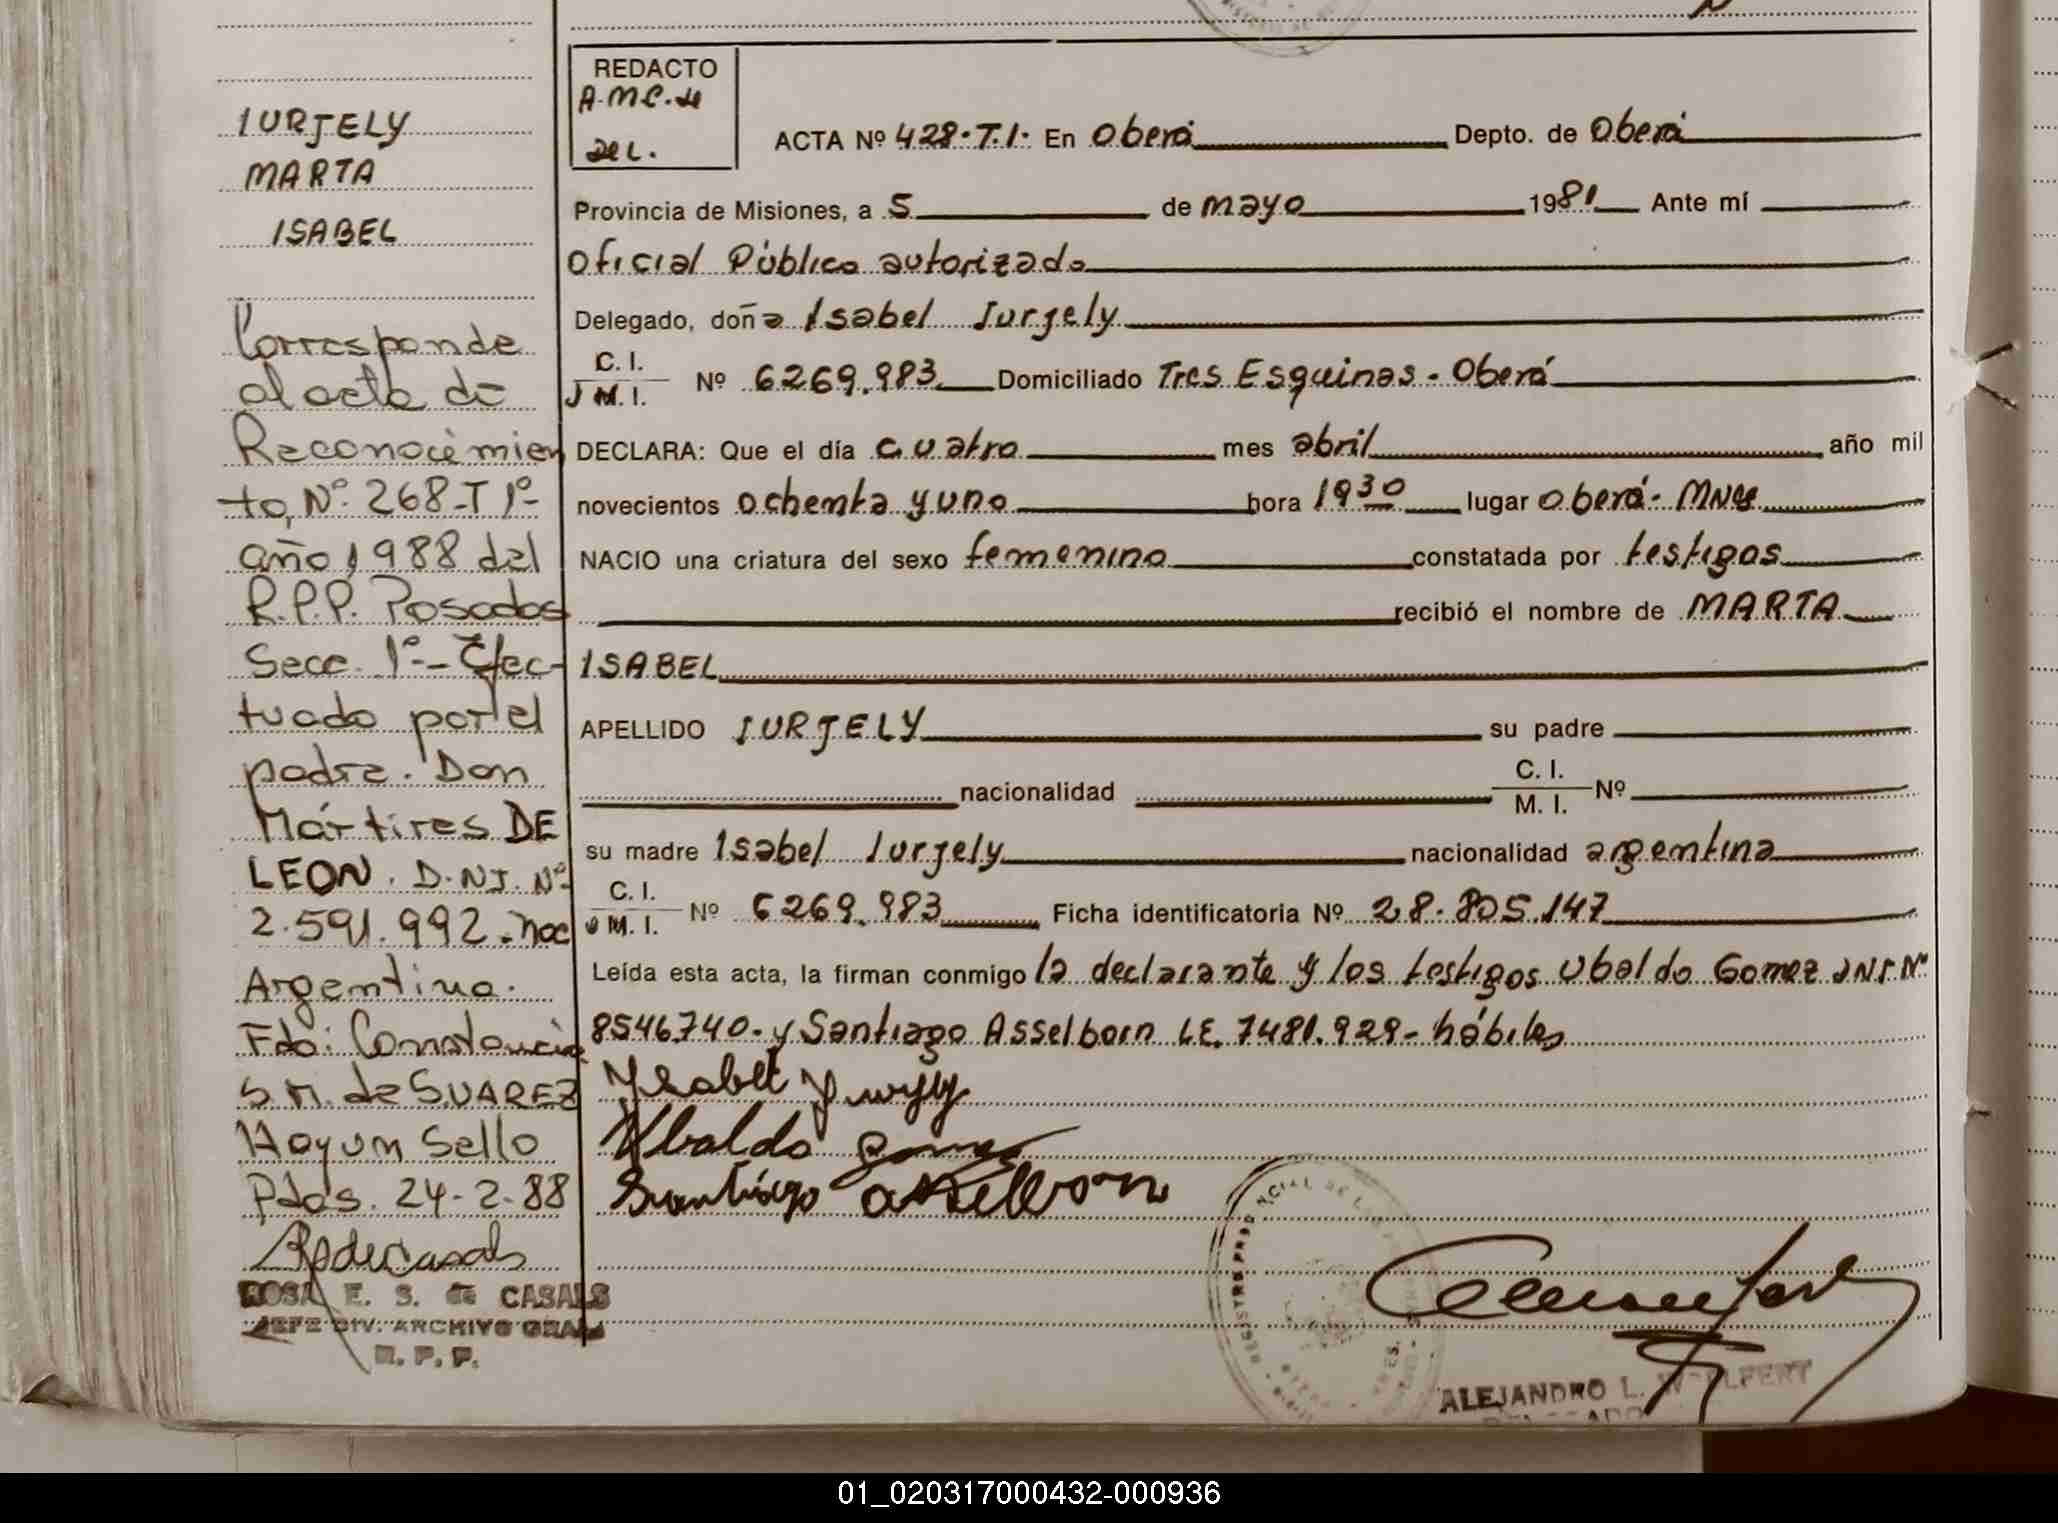 IURJELY
MARTA
ISABEL
Corresponde
al acta de
Reconocimien
to, Nº 268-T 1º-
año 1988 del
R.P.P. Posadas
Secc. 1º-- Efec-
tuado por el
padre. Don
Mártires DE
LEON. D.N.I. Nº
2.591.992. nac
Argentina.
Fdo: Constancia
S M. de SUAREZ
Hay un Sello
Pdas. 24-2-88
ROSA E. S. de CASALS
JEFE DIV. ARCHIVO GRAL
R. P. P.
REDACTO
A.M.C. de
DEL.
ACTA Nº 428.T.I. En Oberá Depto. de Oberá
Provincia de Misiones, a 5 de mayo 1981 Ante mí
Oficial Público autorizado
Delegado, doña Isabel Iurjely
C. I.
M. I. Nº 6269.983 Domiciliado Tres Esquinas - Oberá
DECLARA: Que el día cuatro mes abril año mil
novecientos ochenta y uno hora 1930 lugar Oberá- Mnes
NACIO una criatura del sexo femenino constatada por testigos
recibió el nombre de MARTA
ISABEL
APELLIDO IURJELY su padre
nacionalidad C. I. M. I. Nº
su madre Isabel Iurjely nacionalidad argentina
C. I.
M. I. Nº 6269.983 Ficha identificatoria Nº 28.805.147
Leída esta acta, la firman conmigo la declarante y los testigos Ubaldo Gomez D.N.I. Nº
8546.740- y Santiago Asselborn L.E. 7481.929- hábiles
Ubaldo Gomez
Santiago Asselborn
ALEJANDRO L. WOLFERT
01_020317000432-000936